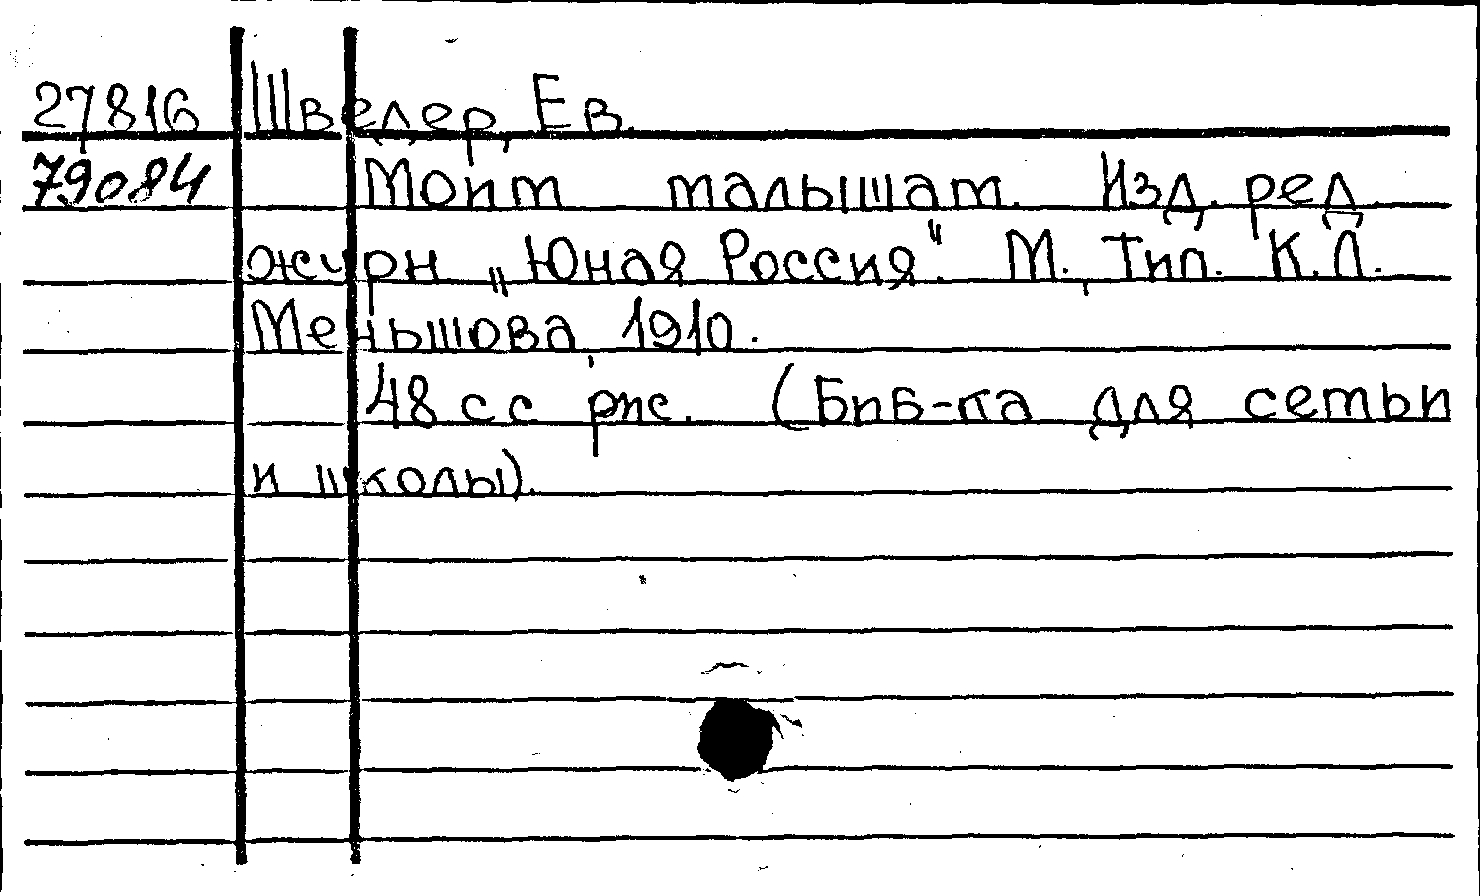 27816 Шведер, Ев.
79084 Моим малышам. Изд. ред.
журн „Юная Россия". М., Тип. К.Л.
Меньшова, 1910.
48 с с рис. (Биб-ка для семьи
и школы).